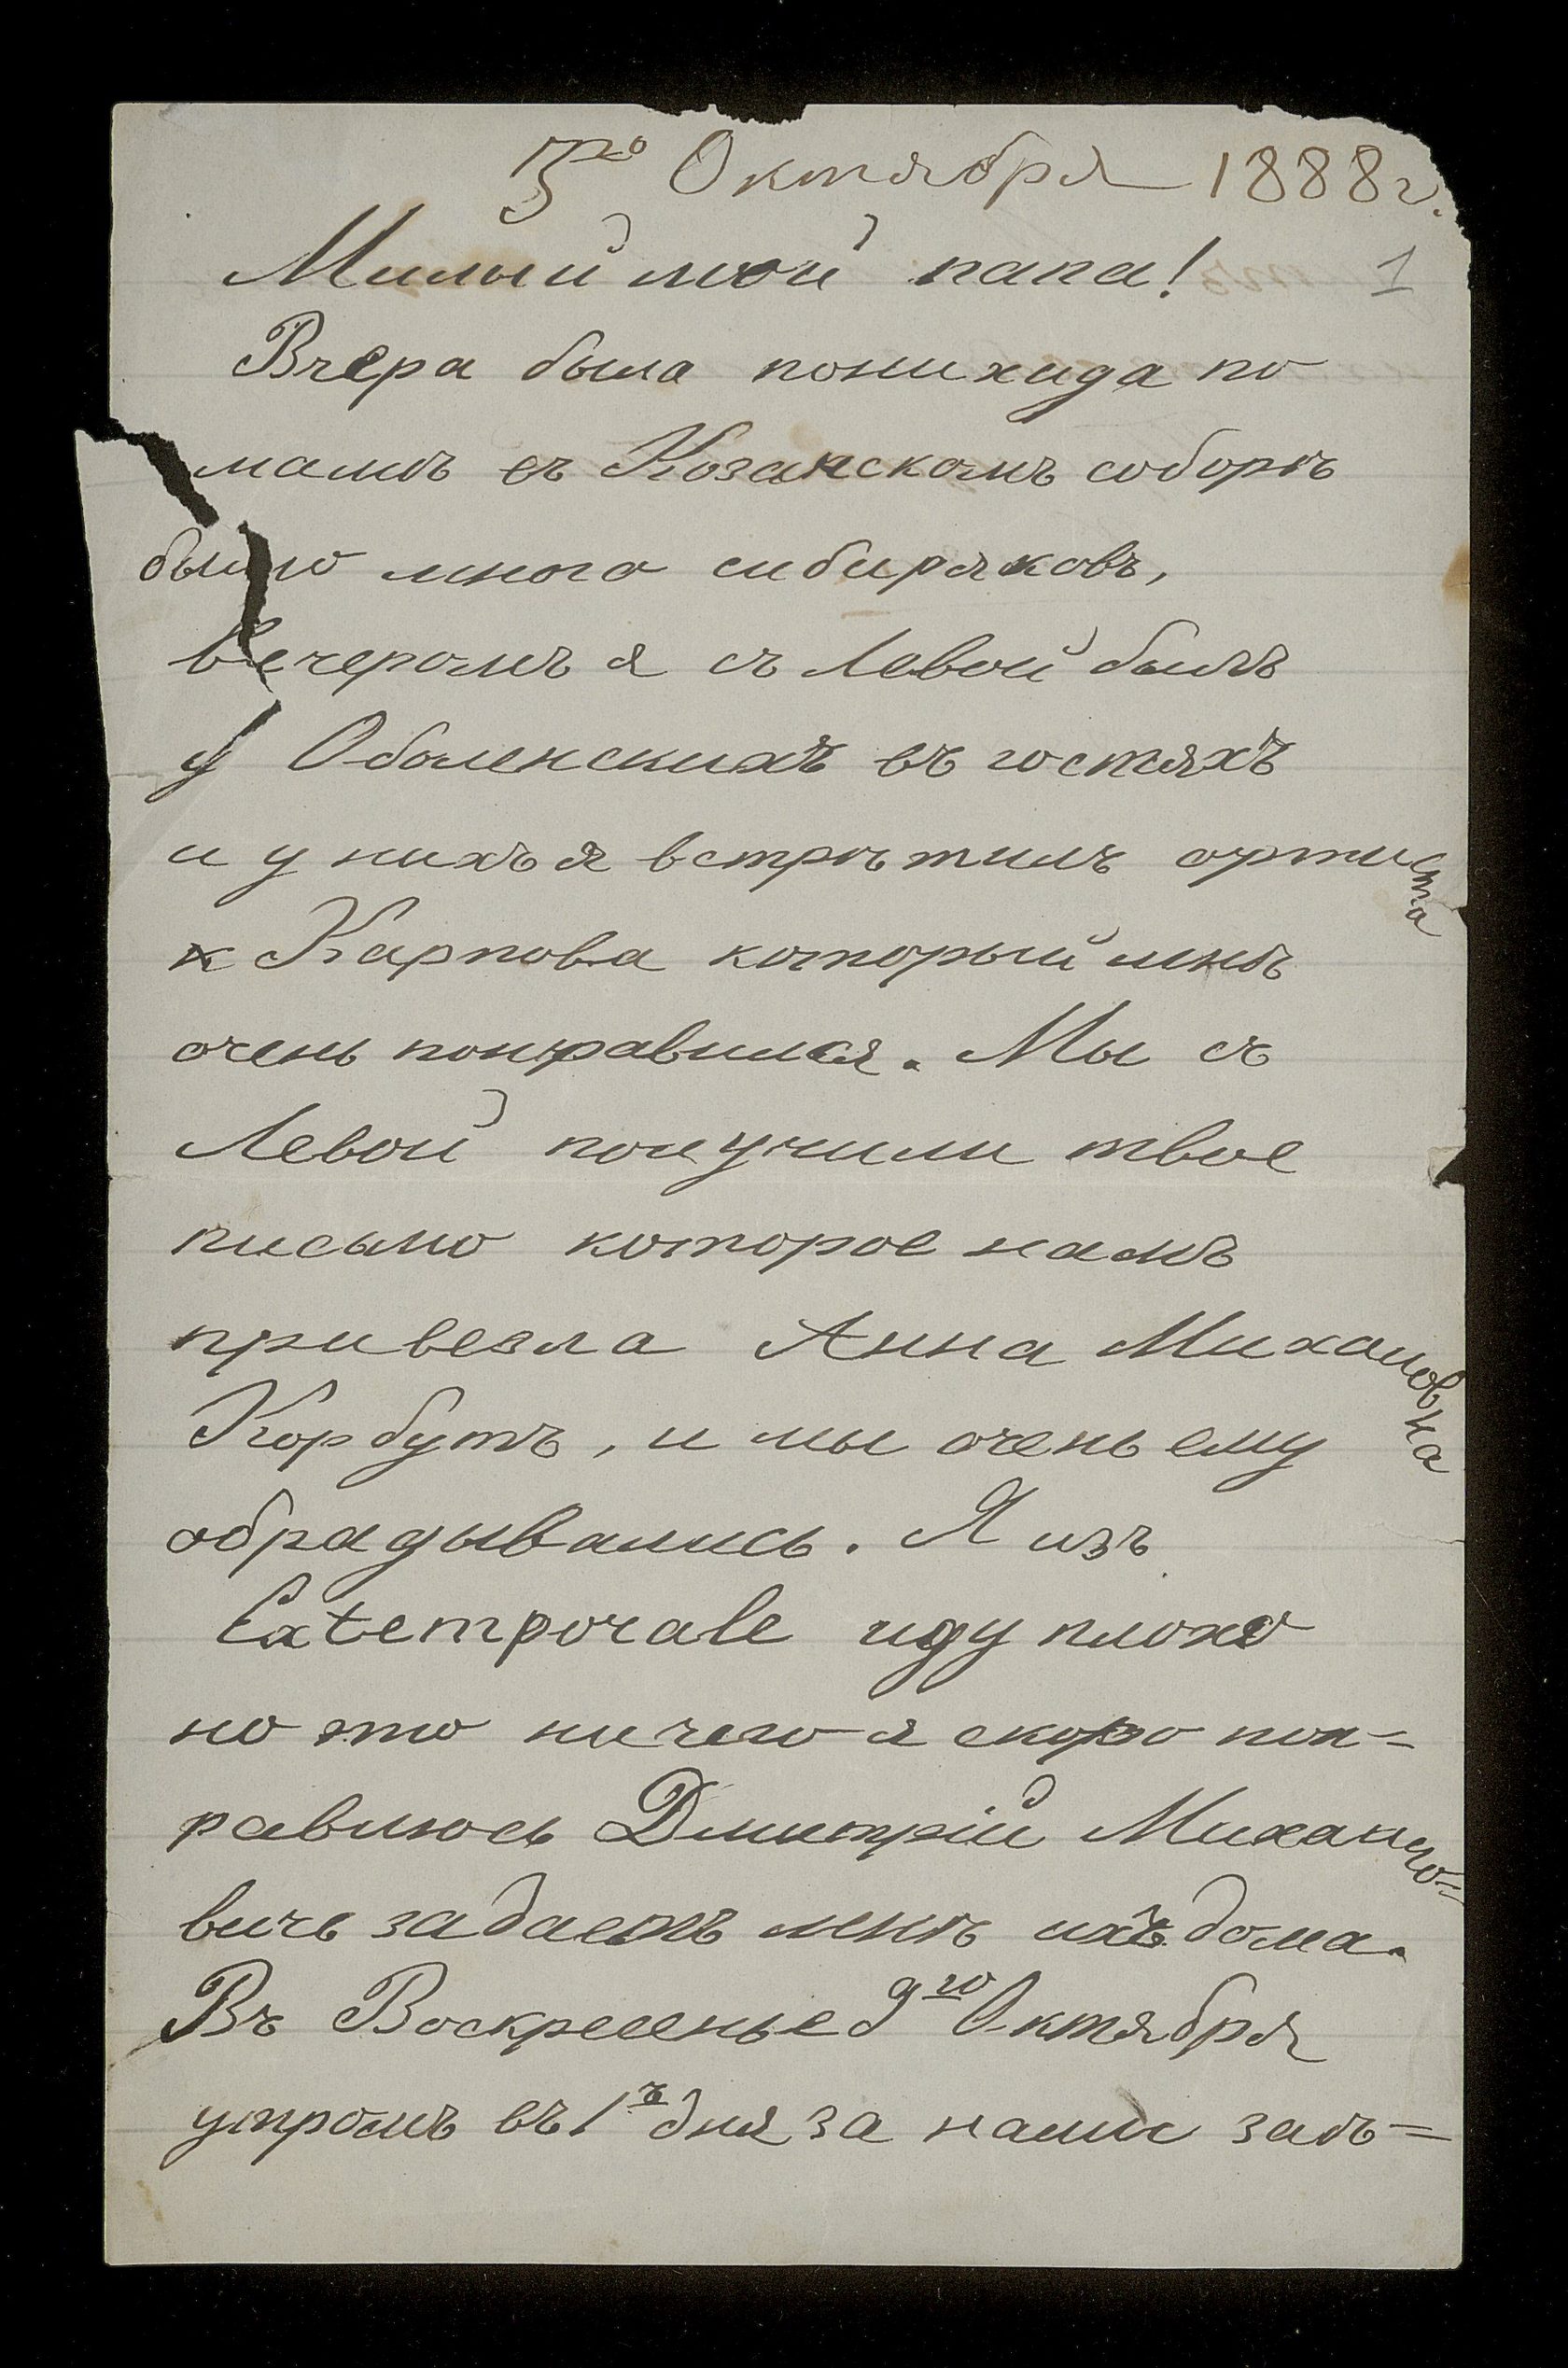 3го Октября 1888 г.
1
Милый мой папа!
Вчера была понихида по
мамѣ въ Козанскомъ соборѣ
было много сибиряковъ,
Вечеромъ я съ Левой былъ
у Оболенскихъ въ гостяхъ
и у нихъ я встрѣтилъ артиста
Карпова который мнѣ
очень понравился. Мы съ
Левой получили твое
письмо которое намъ
привезла Анна Михаловна
Корбутъ, и мы очень ему
обрадывались. Я изъ
Extemporale иду плохо
но это ничего я скоро поп=
равлюсь Дмитрій Михайло=
вичь задаетъ мнѣ ихъ дома.
Въ Воскресенье 9го Октября
утромъ въ 1 ч дня за нами заѣ=